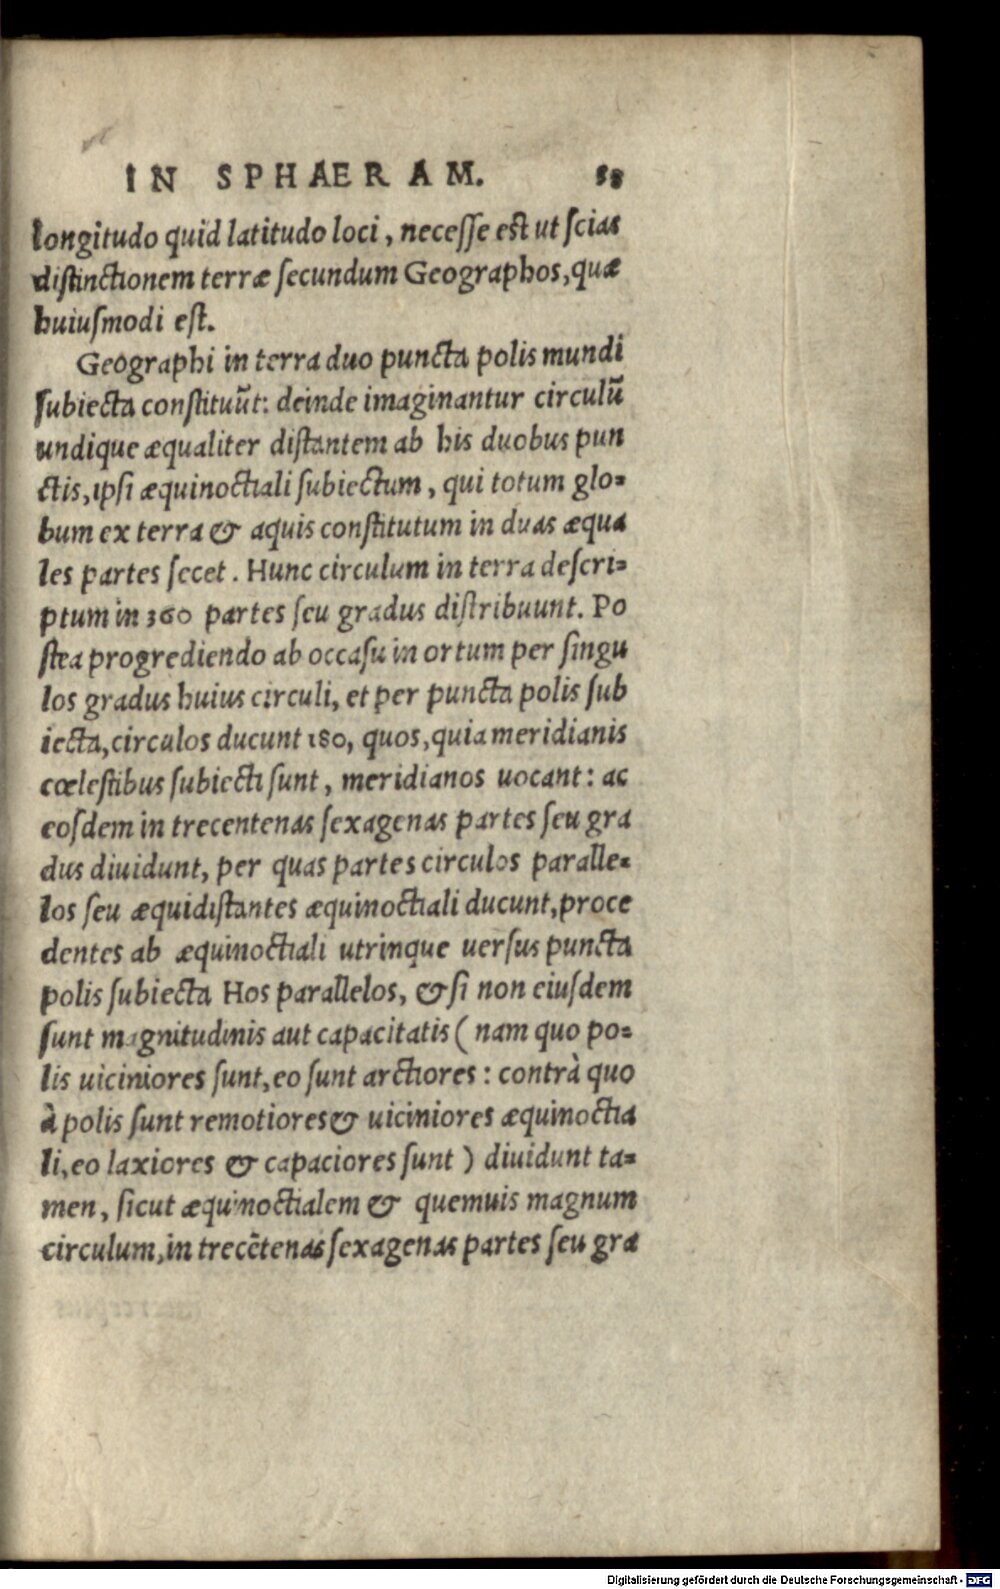 IN SPHAERAM. 58
longitudo quid latitudo loci, necesse est ut scias
distinctionem terræ secundum Geographos, quæ
huiusmodi est.
Geographi in terra duo puncta polis mundi
subiecta constituūt: deinde imaginantur circulū
undique æqualiter distantem ab his duobus pun
ctis, ipsi æquinoctiali subiectum, qui totum glo=
bum ex terra & aquis constitutum in duas æqua
les partes secet. Hunc circulum in terra descri=
ptum in 360 partes seu gradus distribuunt. Po
stea progrediendo ab occasu in ortum per singu
los gradus huius circuli, et per puncta polis sub
iecta, circulos ducunt 180, quos, quia meridianis
cœlestibus subiecti sunt, meridianos uocant: ac
eosdem in trecentenas sexagenas partes seu gra
dus diuidunt, per quas partes circulos paralle=
los seu æquidistantes æquinoctiali ducunt, proce
dentes ab æquinoctiali utrinque uersus puncta
polis subiecta Hos parallelos, & si non eiusdem
sunt magnitudinis aut capacitatis (nam quo po=
lis uiciniores sunt, eo sunt arctiores: contrà quo
à polis sunt remotiores & uiciniores æquinoctia
li, eo laxiores & capaciores sunt) diuidunt ta=
men, sicut æquinoctialem & quemuis magnum
circulum, in trecētenas sexagenas partes seu gra
Digitalisierung gefördert durch die Deutsche Forschungsgemeinschaft - DFG